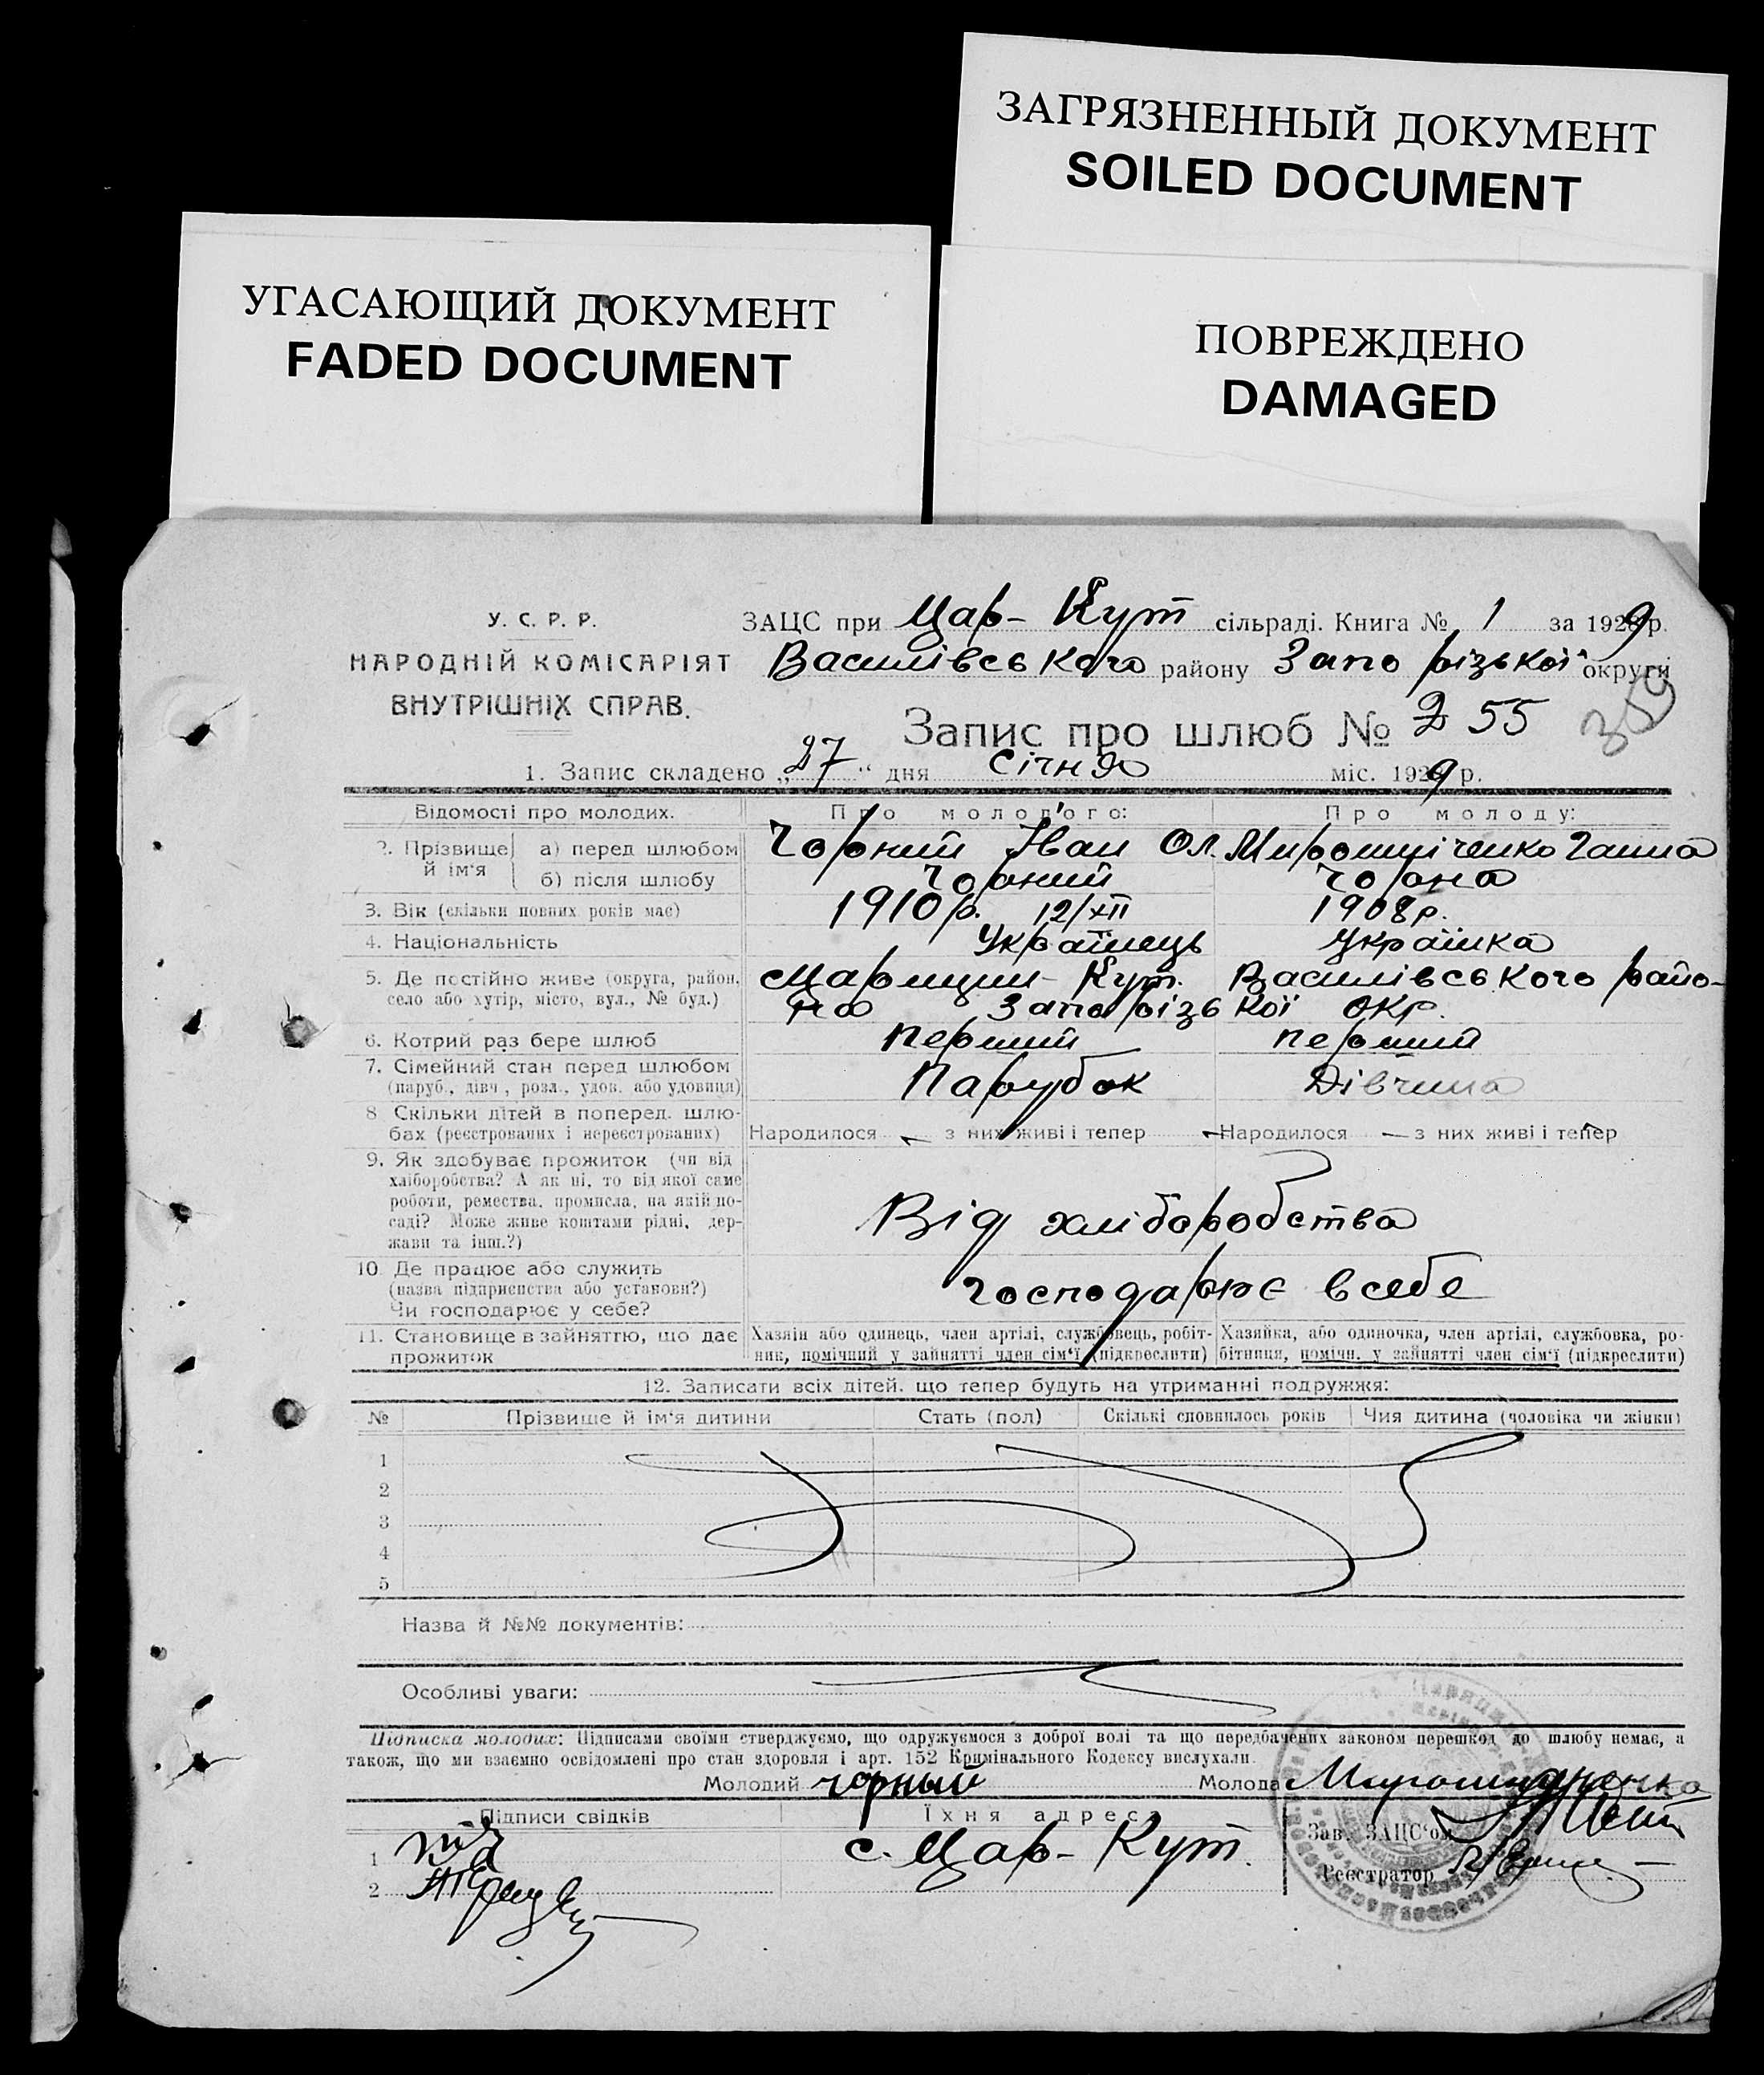 ЗАГРЯЗНЕННЫЙ ДОКУМЕНТ
SOILED DOCUMENT
УГАСАЮЩИЙ ДОКУМЕНТ
FADED DOCUMENT
ПОВРЕЖДЕНО
DAMAGED
У. С. Р. Р.
НАРОДНІЙ КОМІСАРІЯТ
ВНУТРІШНІХ СПРАВ.
ЗАЦС при Цар-Кут сільраді. Книга № 1 за 1929 р.
Василівського району Запорізької округи
359
Запис про шлюб № 2 55
1. Запис складено „27“ дня Січня міс. 1929 р.
Відомості про молодих. Про молодого: Про молоду:
2. Прізвище й ім'я а) перед шлюбом Чорний Іван Ол. Мирошніченко Ганна
б) після шлюбу Чорний Чорна
3. Вік (скільки повних років має) 1910 р. 12/XII 1908 р.
4. Національність Українець Українка
5. Де постійно живе (округа, район, Марицин-Кут. Василівського райо-
село або хутір, місто, вул., № буд.) на Запорізької окр.
6. Котрий раз бере шлюб Перший Перший
7. Сімейний стан перед шлюбом Парубок Дівчина
(паруб., дівч., розл., удов. або удовиця)
8 Скільки дітей в поперед. шлю-
бах (реєстрованих і нереєстрованих) Народилося — з них живі і тепер — Народилося — з них живі і тепер —
9. Як здобуває прожиток (чи від
хліборобства? А як ні, то від якої саме
роботи, ремества, промисла, на якій по-
саді? Може живе коштами рідні, дер-
жави та інш.?)
Від хліборобства
10 Де працює або служить
(назва підприємства або установи?)
Чи господарює у себе?
Господарює в себе
11. Становище в зайняттю, що дає Хазяін або одинець, член артілі, службовець, робіт- Хазяйка, або одиночка, член артілі, службовка, ро-
прожиток ник, помічний у зайнятті член сім'ї (підкреслити) бітниця, помічн. у зайнятті член сім'ї (підкреслити)
12. Записати всіх дітей, що тепер будуть на утриманні подружжя:
№ Прізвище й ім'я дитини Стать (пол) Скількі сповнилось років Чия дитина (чоловіка чи жінки)
1
2
3
4
5
Назва й №№ документів:
Особливі уваги:
Підписка молодих: Підписами своїми стверджуємо, що одружуємося з доброї волі та що передбачених законом перешкод до шлюбу немає, а
також, що ми взаємно освідомлені про стан здоровля і арт. 152 Кримінального Кодексу вислухали.
Молодий чорный Молода Мирошниченко
Підписи свідків Їхня адреса
1 с. Цар-Кут. Зав. ЗАЦС'ом
2 Реєстратор